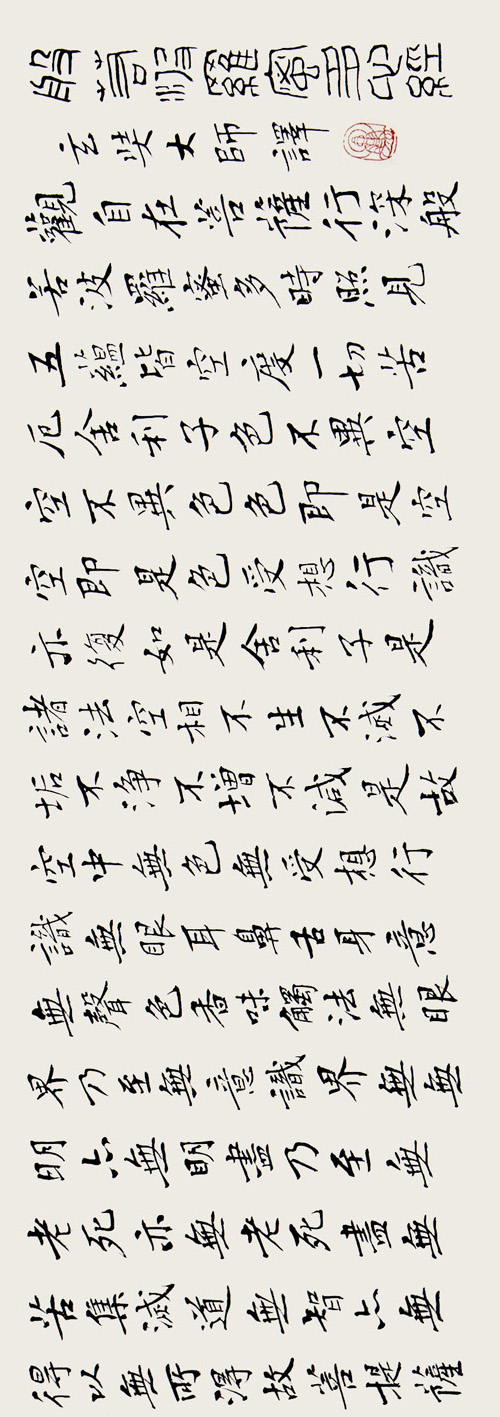 般若波羅蜜多心經
玄奘大師譯
觀自在菩薩行深般
若波羅蜜多時照見
五蘊皆空度一切苦
厄舍利子色不異空
空不異色色即是空
空即是色受想行識
亦復如是舍利子是
諸法空相不生不滅不
垢不淨不增不減是故
空中無色無受想行
識無眼耳鼻舌身意
無聲色香味觸法無眼
界乃至無意識界無無
明亦無明盡乃至無
老死亦無老死盡無
苦集滅道無智亦無
得以無所得故菩提薩